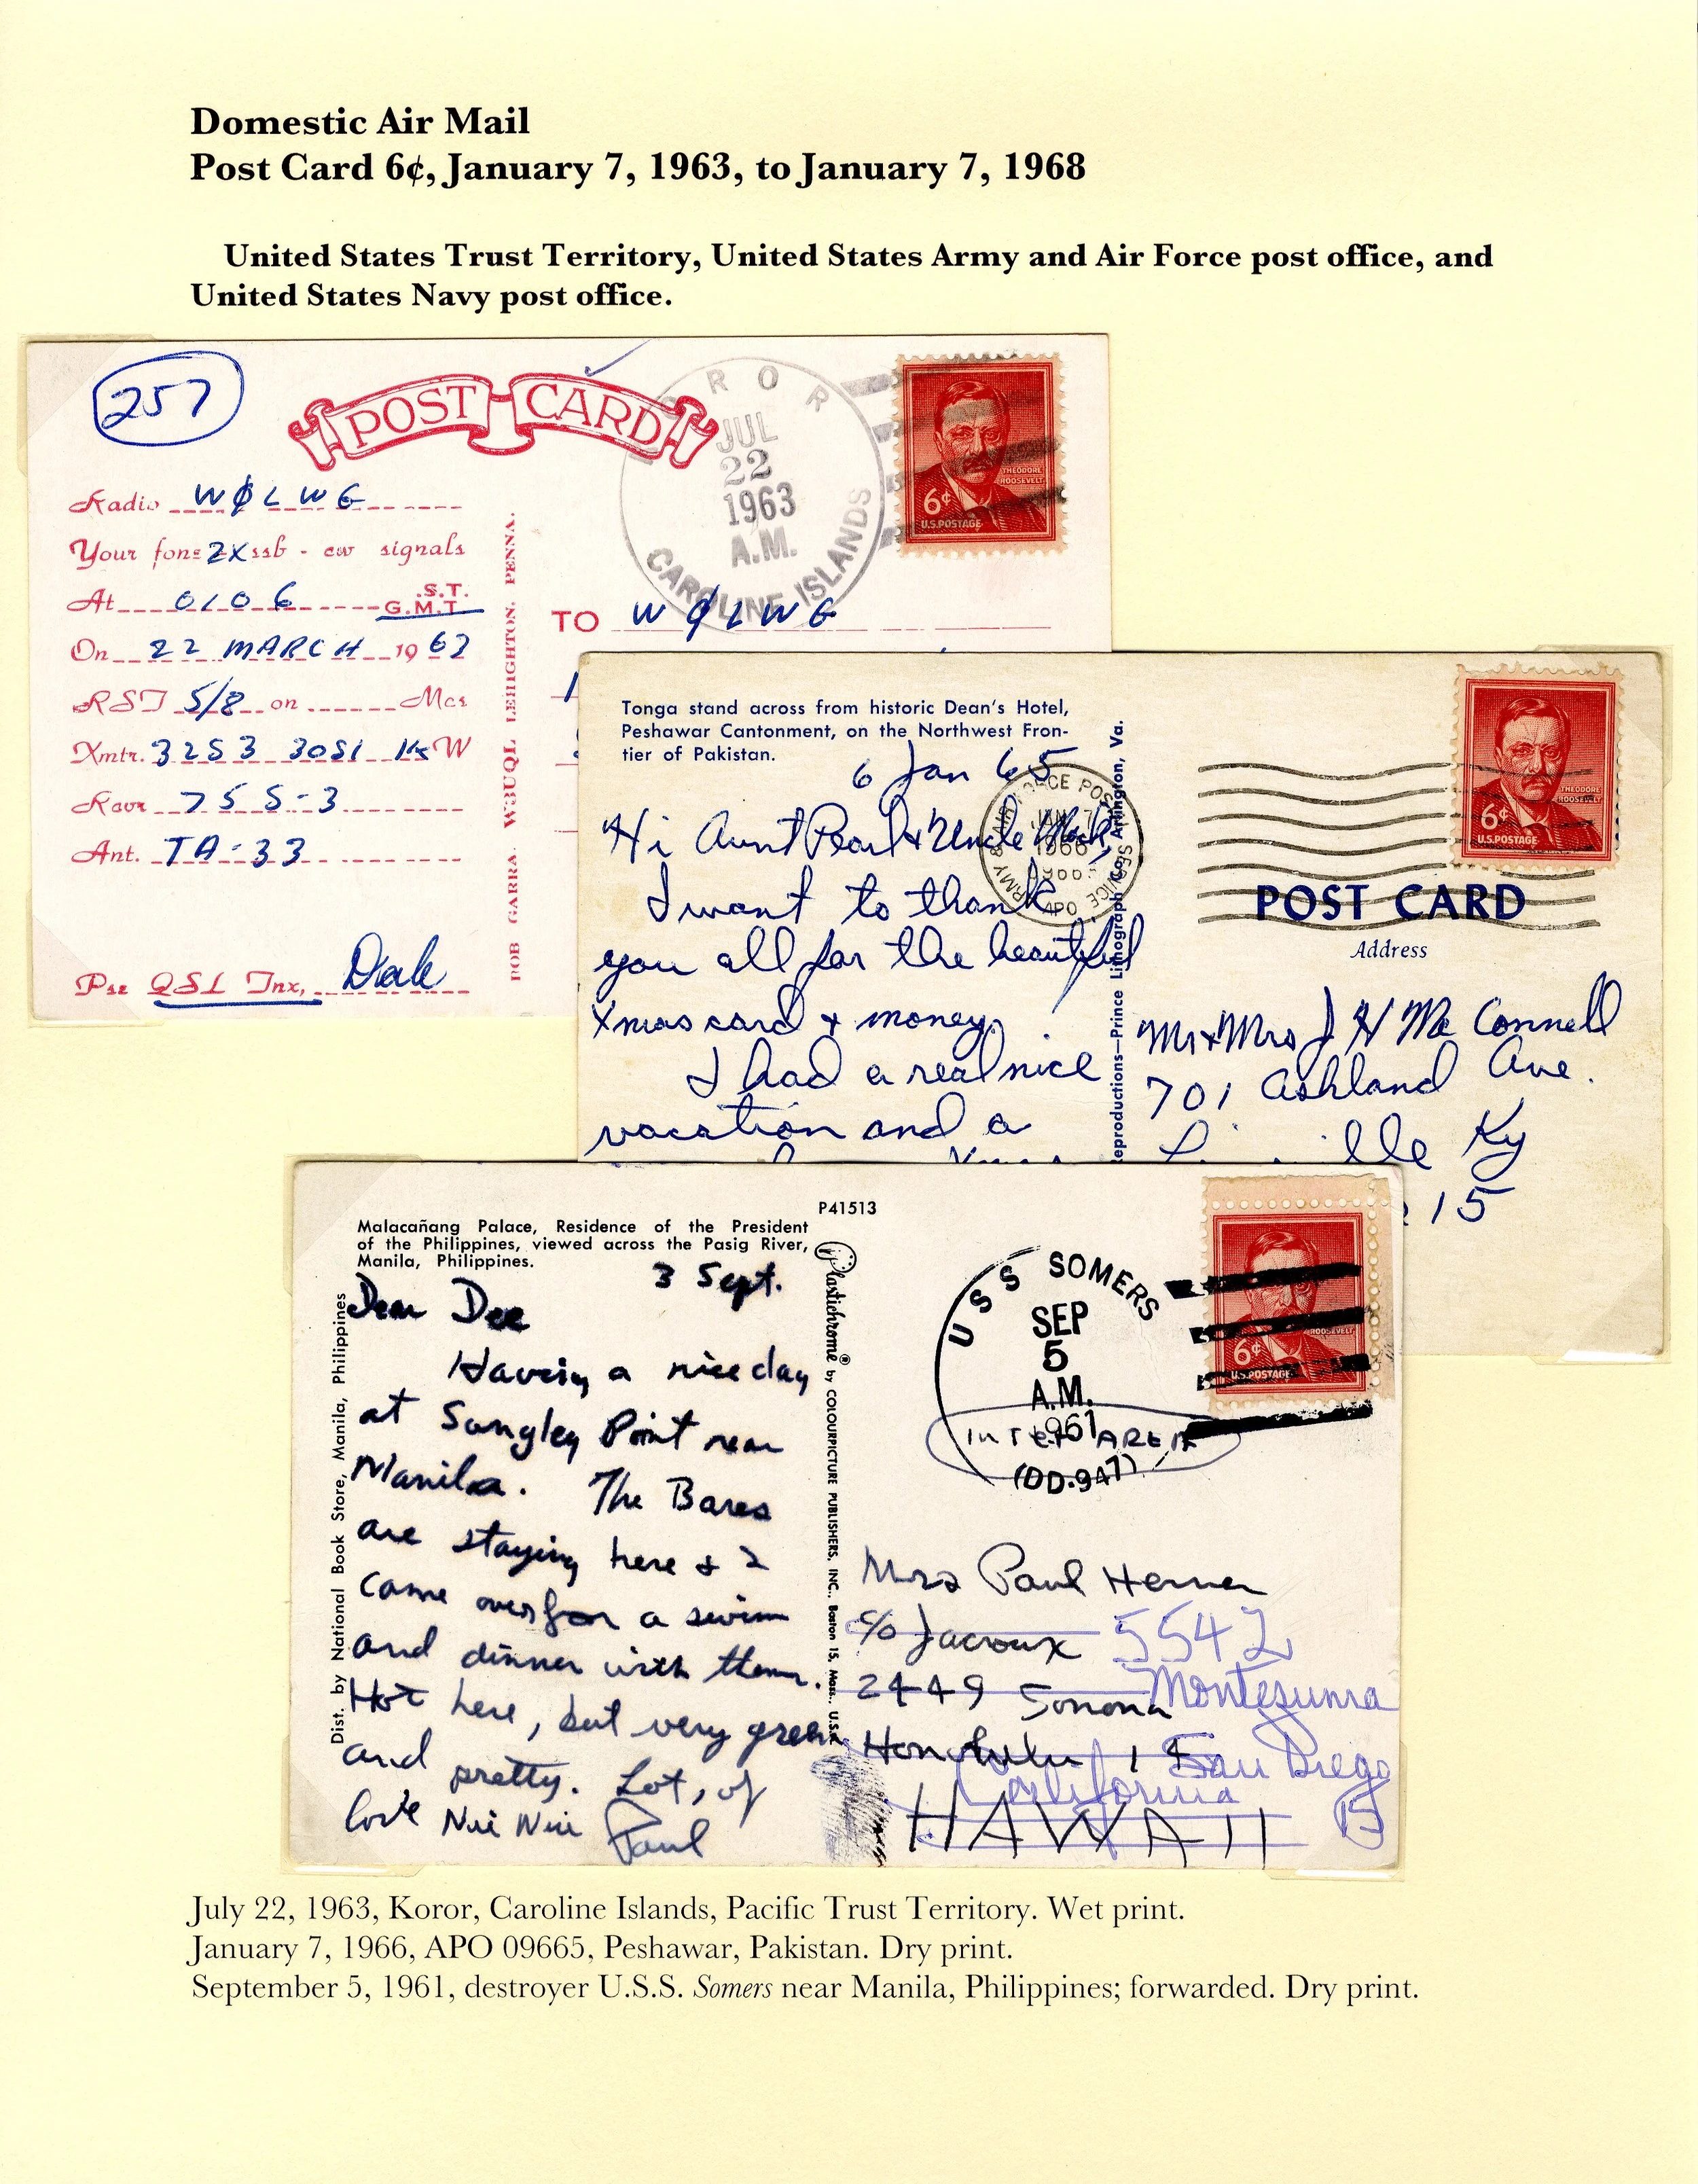 Domestic Air Mail
Post Card 6¢, January 7, 1963, to January 7, 1968
United States Trust Territory, United States Army and Air Force post office, and
United States Navy post office.
257
POST CARD
ROR
JUL
22
1963
A.M.
CAROLINE ISLANDS
THEODORE
ROOSEVELT
6¢
U.S. POSTAGE
Radio WØLWG
Your fone 2X ssb - cw signals
At 0106 S.T.
G.M.T.
On 22 MARCH 1963
RST 5/8 on Mcs
Xmtr. 32S3 30S1 W
Rcvr 75S-3
Ant. TA-33
Pse QSL Tnx,
BOB GARRA. W3UQL LEHIGHTON. PENNA.
TO WØLWG
Tonga stand across from historic Dean's Hotel,
Peshawar Cantonment, on the Northwest Fron-
tier of Pakistan.
6 Jan 65
Hi Aunt Pearl & Uncle
I want to thank
you all for the beautiful
Xmas card & money.
I had a real nice
vacation and a
ARMY & AIR FORCE POSTAL SERVICE
JAN 7
1966
APO
eproductions—Prince Lithograph Co., Arlington, Va.
THEODORE
ROOSEVELT
6¢
U.S. POSTAGE
POST CARD
Address
Mr & Mrs J H McConnell
701 Ashland Ave.
Ky
15
P41513
Malacañang Palace, Residence of the President
of the Philippines, viewed across the Pasig River,
Manila, Philippines.
3 Sept.
Dear Dee
Having a nice day
at Sangley Point near
Manila. The Bares
are staying here & I
came over for a swim
and dinner with them.
Hot here, but very green
and pretty. Lots of
love Nui Nui Paul
Dist. by National Book Store, Manila, Philippines
Plastichrome® by COLOURPICTURE PUBLISHERS, INC., Boston 15, Mass., U.S.A.
USS SOMERS
SEP
5
A.M.
1961
INTER AREA
(DD-947)
ROOSEVELT
6¢
U.S. POSTAGE
Mrs Paul Herner
c/o Jacroux
2449 Sonoma
Honolulu 14
HAWAII
5542
Montezuma
San Diego
California
15
July 22, 1963, Koror, Caroline Islands, Pacific Trust Territory. Wet print.
January 7, 1966, APO 09665, Peshawar, Pakistan. Dry print.
September 5, 1961, destroyer U.S.S. Somers near Manila, Philippines; forwarded. Dry print.